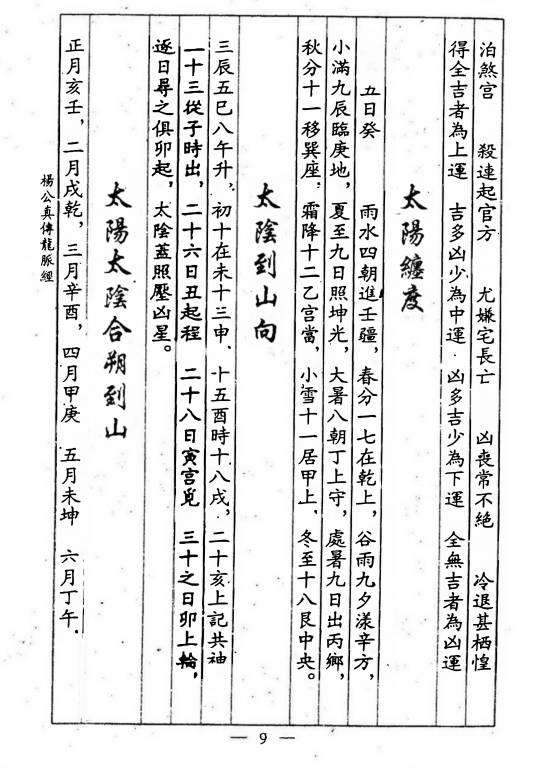 泊煞宫　殺連起官方　尤嫌宅長亡　凶喪常不絕　冷退甚栖惶
得全吉者為上運　吉多凶少為中運．凶多吉少為下運　全無吉者為凶運
太陽纏度
五日癸　雨水四朝進壬疆，春分一七在乾上，谷雨九夕漾辛方，
小滿九辰臨庚地，夏至九日照坤光，大暑八朝丁上守，處暑九日出丙鄉，
秋分十一移巽座．霜降十二乙宫當，小雪十一居甲上，冬至十八艮中央。
太陰到山向
三辰五巳八午升，初十在未十三申．十五酉時十八戌，二十亥上記共神
一十三從子時出，二十六日丑起程　二十八日寅宫覓　三十之日卯上輪，
逐日尋之俱卯起，太陰蓋照壓凶星。
太陽太陰合朔到山
正月亥壬，二月戌乾，三月辛酉，四月甲庚　五月未坤　六月丁午．
楊公真傳龍脈經
— 9 —